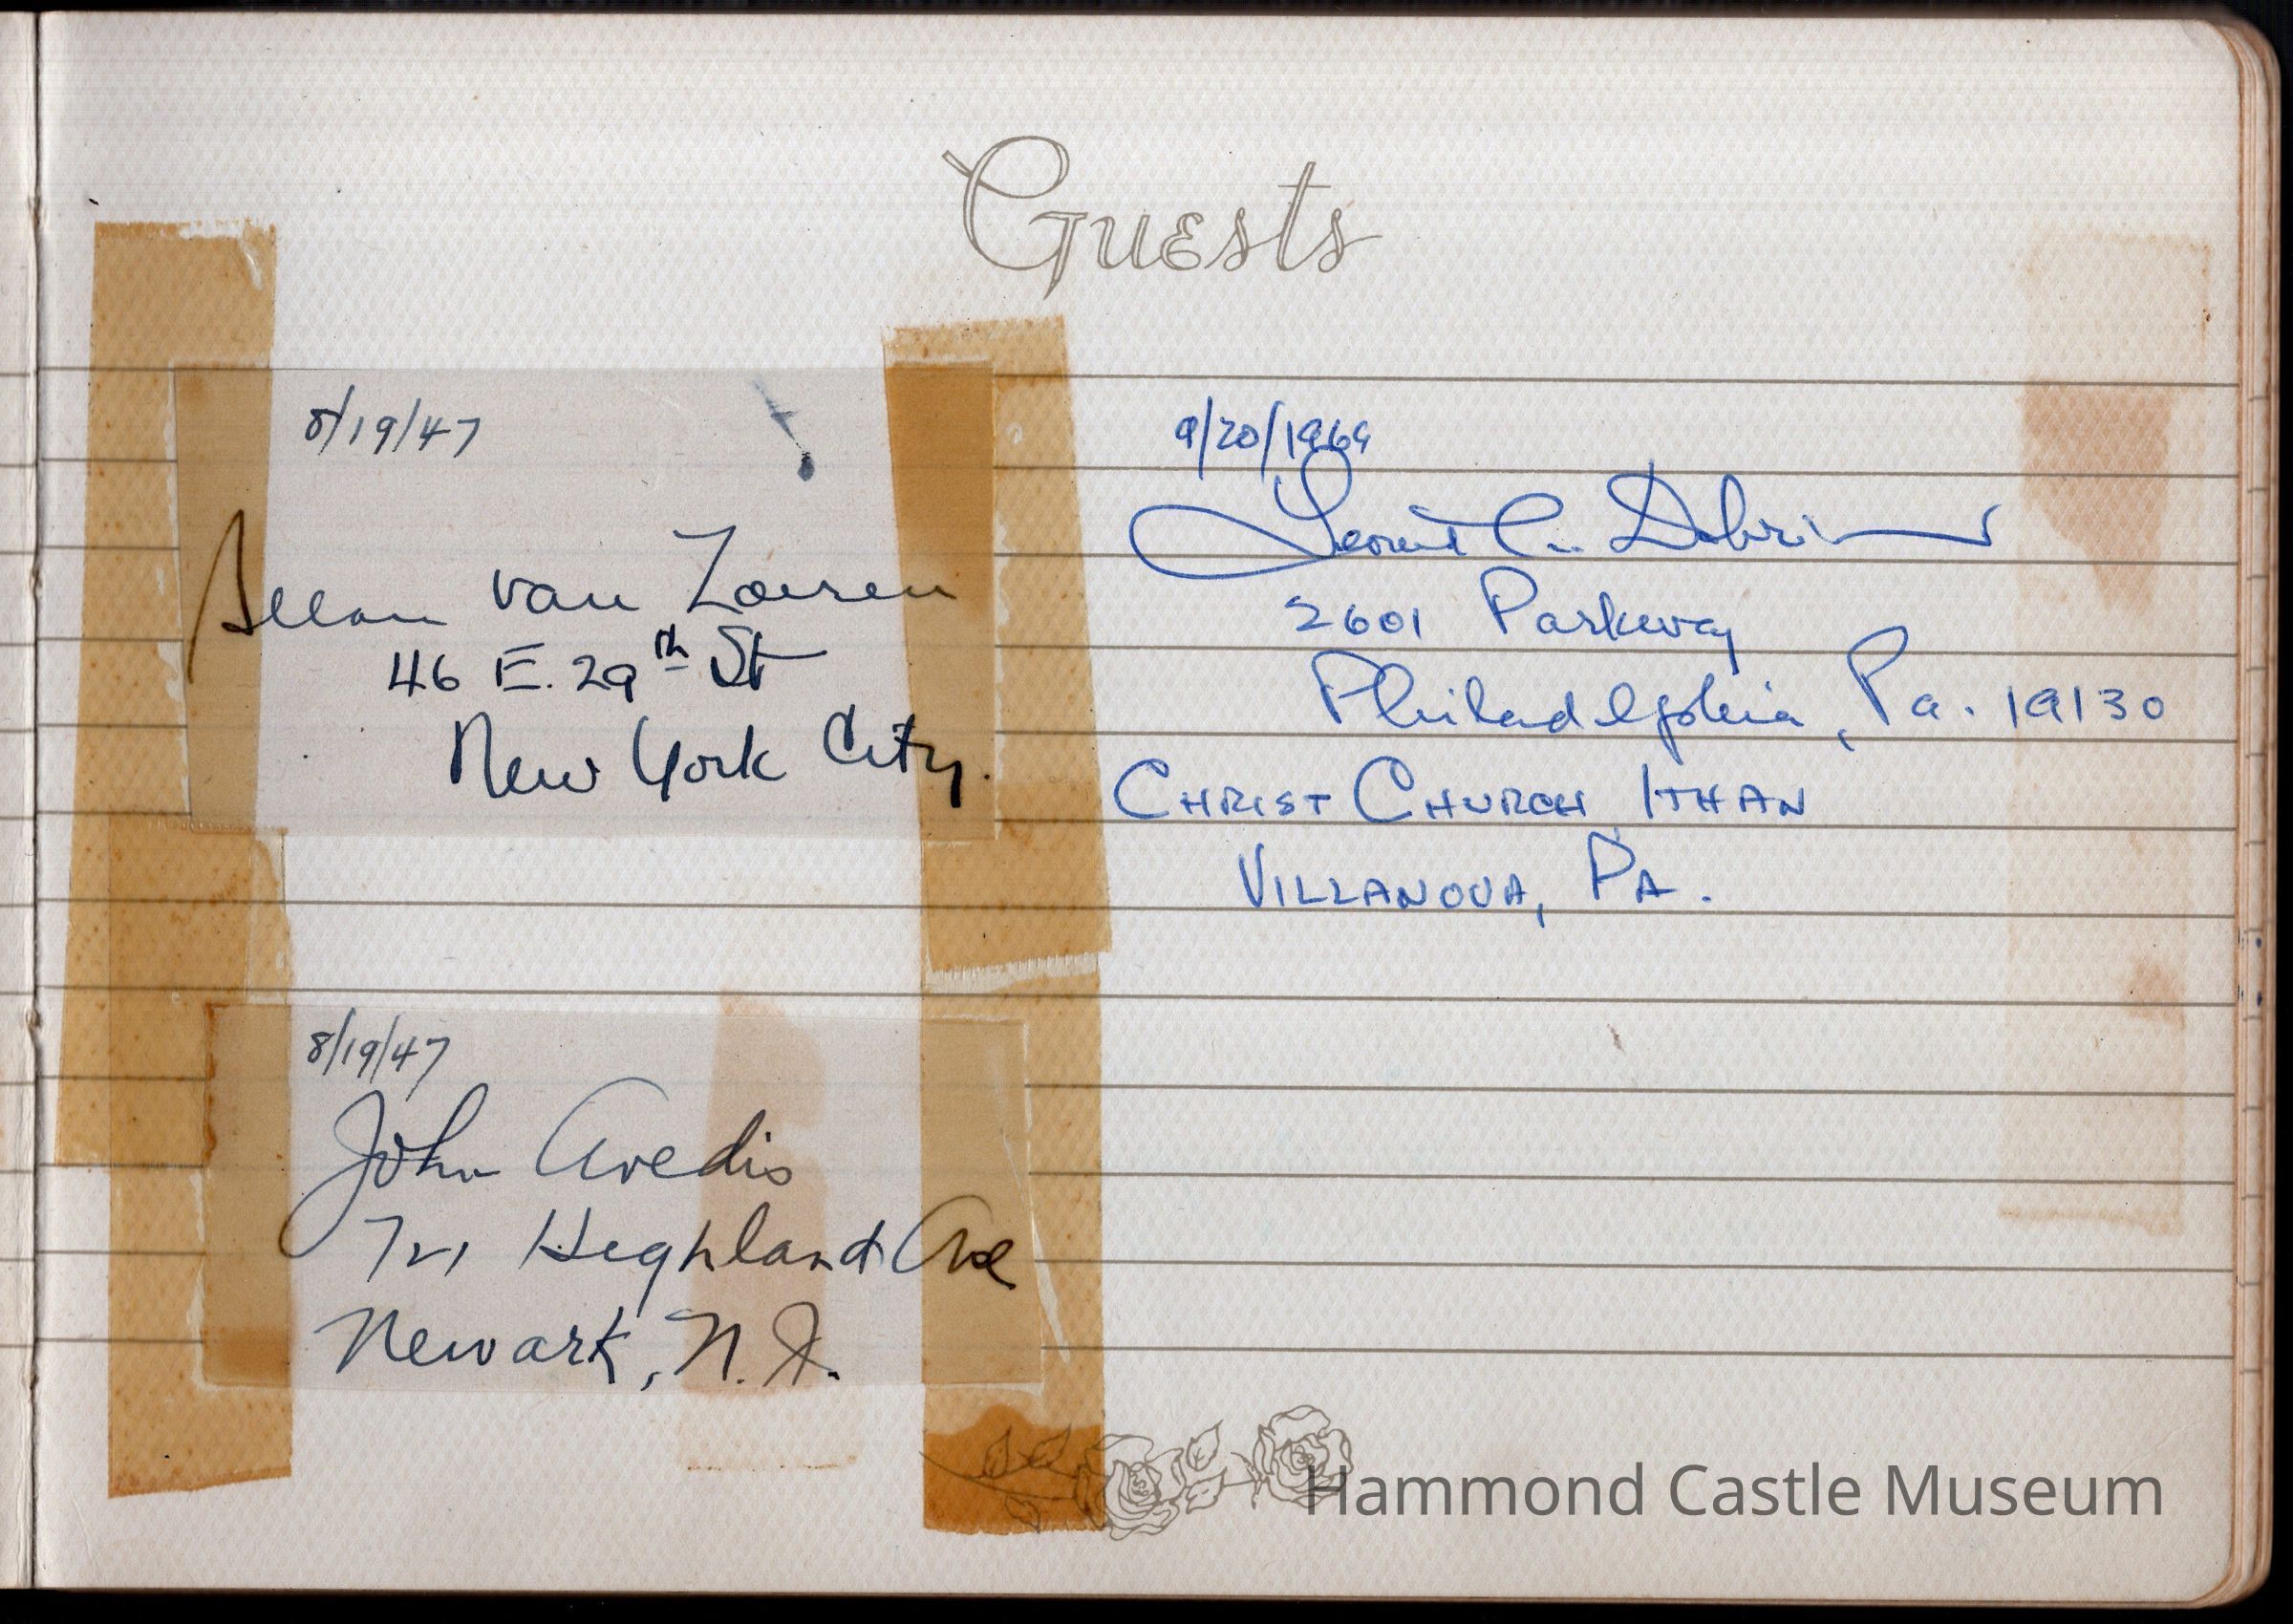 Guests
8/19/47
Allan Van Zoeren
46 E. 29th St
New York City.
8/19/47
John Avedis
721 Highland Ave
Newark, N.J.
9/20/1969
2601 Parkway
Philadelphia, Pa. 19130
CHRIST CHURCH ITHAN
VILLANOVA, PA.
Hammond Castle Museum